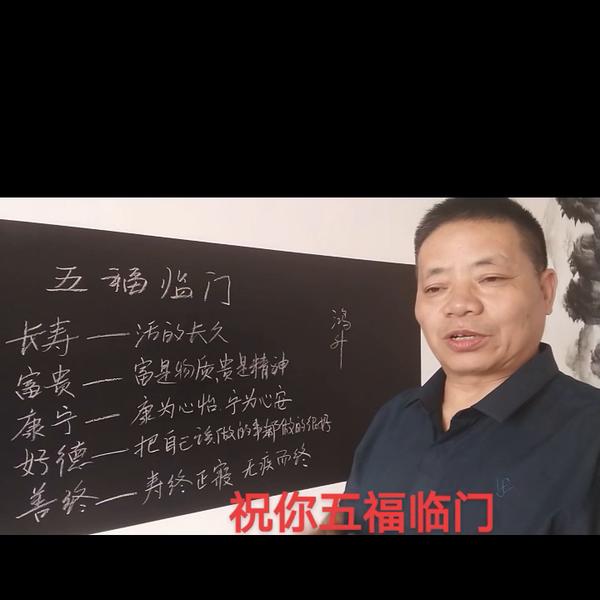 五福临门
长寿——活的长久
富贵——富是物质,贵是精神
康宁——康为心怡.宁为心安
好德——把自己该做的事都做的很好
善终——寿终正寝 无疾而终
鸿升
祝你五福临门